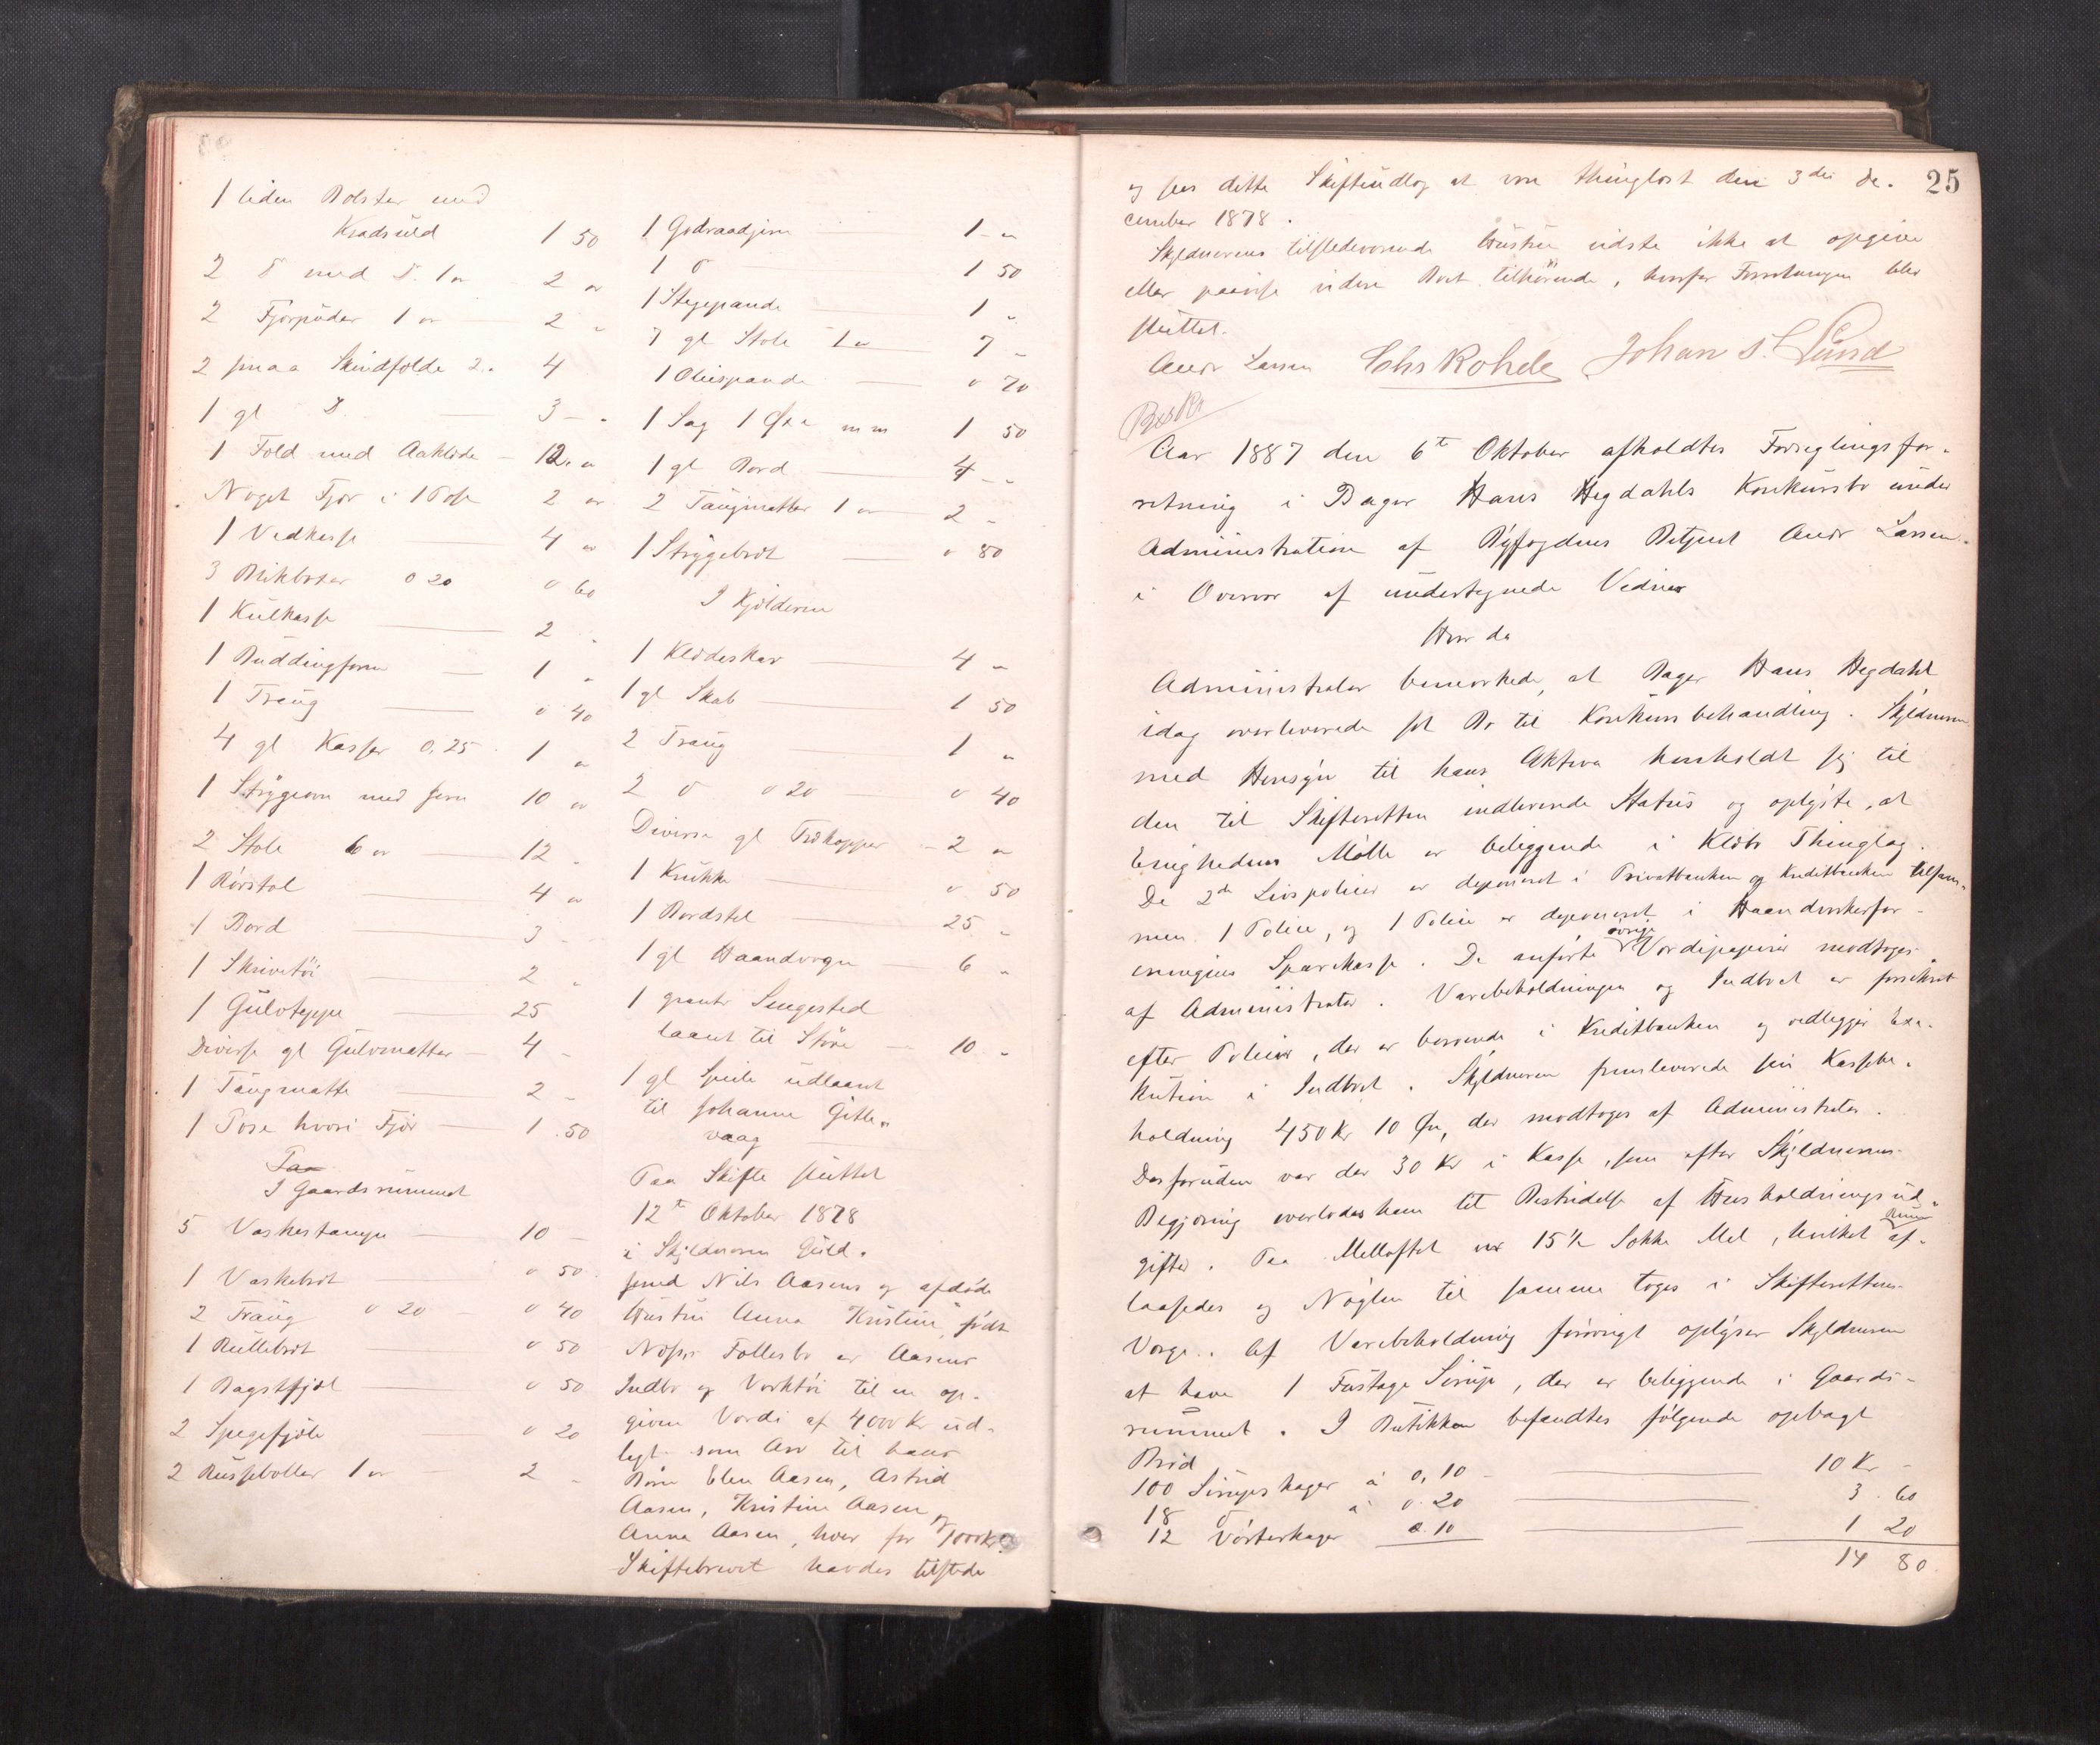 1 liden Bolster med
Kradsuld 1 50
2 D med D. 1 " 2 "
2 Fjørpuder 1 " 2 "
2 smaa Skindfolde 2. 4
1 gl D. 3 - "
1 Fold med Aaklæde 12. "
Noget Fjør i 1 Pose 2 "
1 Vedkasse 4 "
3 Blikboxer 0 20 0 60
1 Kulkasse 2 "
1 Buddingform 1 "
1 Traug 0 40
4 gl Kasser 0,25 1 "
1 Strygeovn med Jern 10 "
2 Stole 6 " 12 "
1 Rørstol 4 "
1 Bord 3 -
1 Skrivetøi 2 "
1 Gulvteppe 25
Diverse gl Gulvmatter 4 -
1 Taugmatte 2 -
1 Pose hvori Fjør 1.50
Paa
I Gaardsrummet
5 Vaskestamper 10 -
1 Vaskebræt 0 50
2 Traug 0 20 0 40
1 Rullebræt 0 50
1 Bagstfjøl 0 50
2 Spegefjøle 0 20
2 Russeboller 1 " 2 -
1 Godraadjern 1 - "
1 D 1 50
1 Stegepande 1 "
7 gl Stole 1 " 7 -
1 Oliespande 0 70
1 Sag 1 Øxe m m 1 50
1 gl Bord 4 - -
2 Taugmatter 1 " 2 -
1 Strygebræt 0 80
I Kjælderen
1 Klædeskar 4 "
1 gl Skab 1 50
2 Traug 1 "
2 D 0 20 0 40
Diverse gl Trækopper 2 "
1 Krukke 0 50
1 Bordstel 25 "
1 gl Haandvogn 6 "
1 Sengested
laant til Støre 10 "
1 gl Speile udlaant
til Johanne Gitle-
vaag
Paa Skifte sluttet
12te Oktober 1878
i Skyldneren Guld-
smed Nils Aasens og afdøde
Hustru Anna Kristine, født
Follesbø er Aasens
Indbo og Værktøi til en op-
given Værdi af 4000 Kr ud-
lagt som Arv til hans
Børn Elen Aasen, Astrid
Aasen, Kristine Aasen og
Anna Aasen, hver for 1000 Kr.
Skiftebrevet havdes tilstede
25
og sees dette Skifteudlæg at være thinglæst den 3die De-
cember 1878.
Skyldnerens tilstedeværende Hustru vidste ikke at opgive
eller paavise videre Boet tilhørende, hvorfor Forretningen blev
sluttet.
Andr Larsen Chs Rohde Johan S. Lund
Beskr
Aar 1887 den 6te Oktober afholdtes Forseglingsfor-
retning i Bager Hans Hegdahls Konkursbo under
Administration af Byfogdens Betjent Andr Larsen
i Overvær af undertegnede Vidner
Hvor da
Administrator bemærkede, at Bager Hans Hegdahl
idag overleverede sit Bo til Konkursbehandling. Skyldneren
med Hensyn til hans Aktiva henholdt sig til
den til Skifteretten indleverede Status og oplyste, at
Enighedens Mølle er beliggende i Klæbo Thinglag.
De 2de Livspolicer er deponeret i Privatbanken og Kreditbanken tilsam-
men 1 Police, og 1 Police er deponeret i Haandværkerfor-
eningens Sparekasse. De anførte øvrige Værdipapirer modtoges
af Administrator. Varebeholdningen og Indboet er forsikret
efter Policer, der er beroende i Kreditbanken og vedlegger Exe-
kution i Indboet. Skyldneren fremleverede sin Kassebe-
holdning 450 Kr 10 Øre, der modtoges af Administrator.
Desforuden var der 30 Kr i Kasse, som efter Skyldnerens
Begjæring overlodes ham til Bestridelse af Husholdningsud-
gifter. Paa Melloftet var 15 1/2 Sække Mel, hvilket Rum af-
laasedes og Nøglen til samme toges i Skifterettens
Værge. Af Varebeholdning forøvrigt oplyser Skyldneren
at have 1 Fustage Sirup, der er beliggende i Gaards-
rummet. I Butikken befandtes følgende opbagt
Brød
100 Sirupskager à 0,10 10 Kr -
18 D à 0.20 3.60
12 Vørterkager 0.10 1 20
14 80